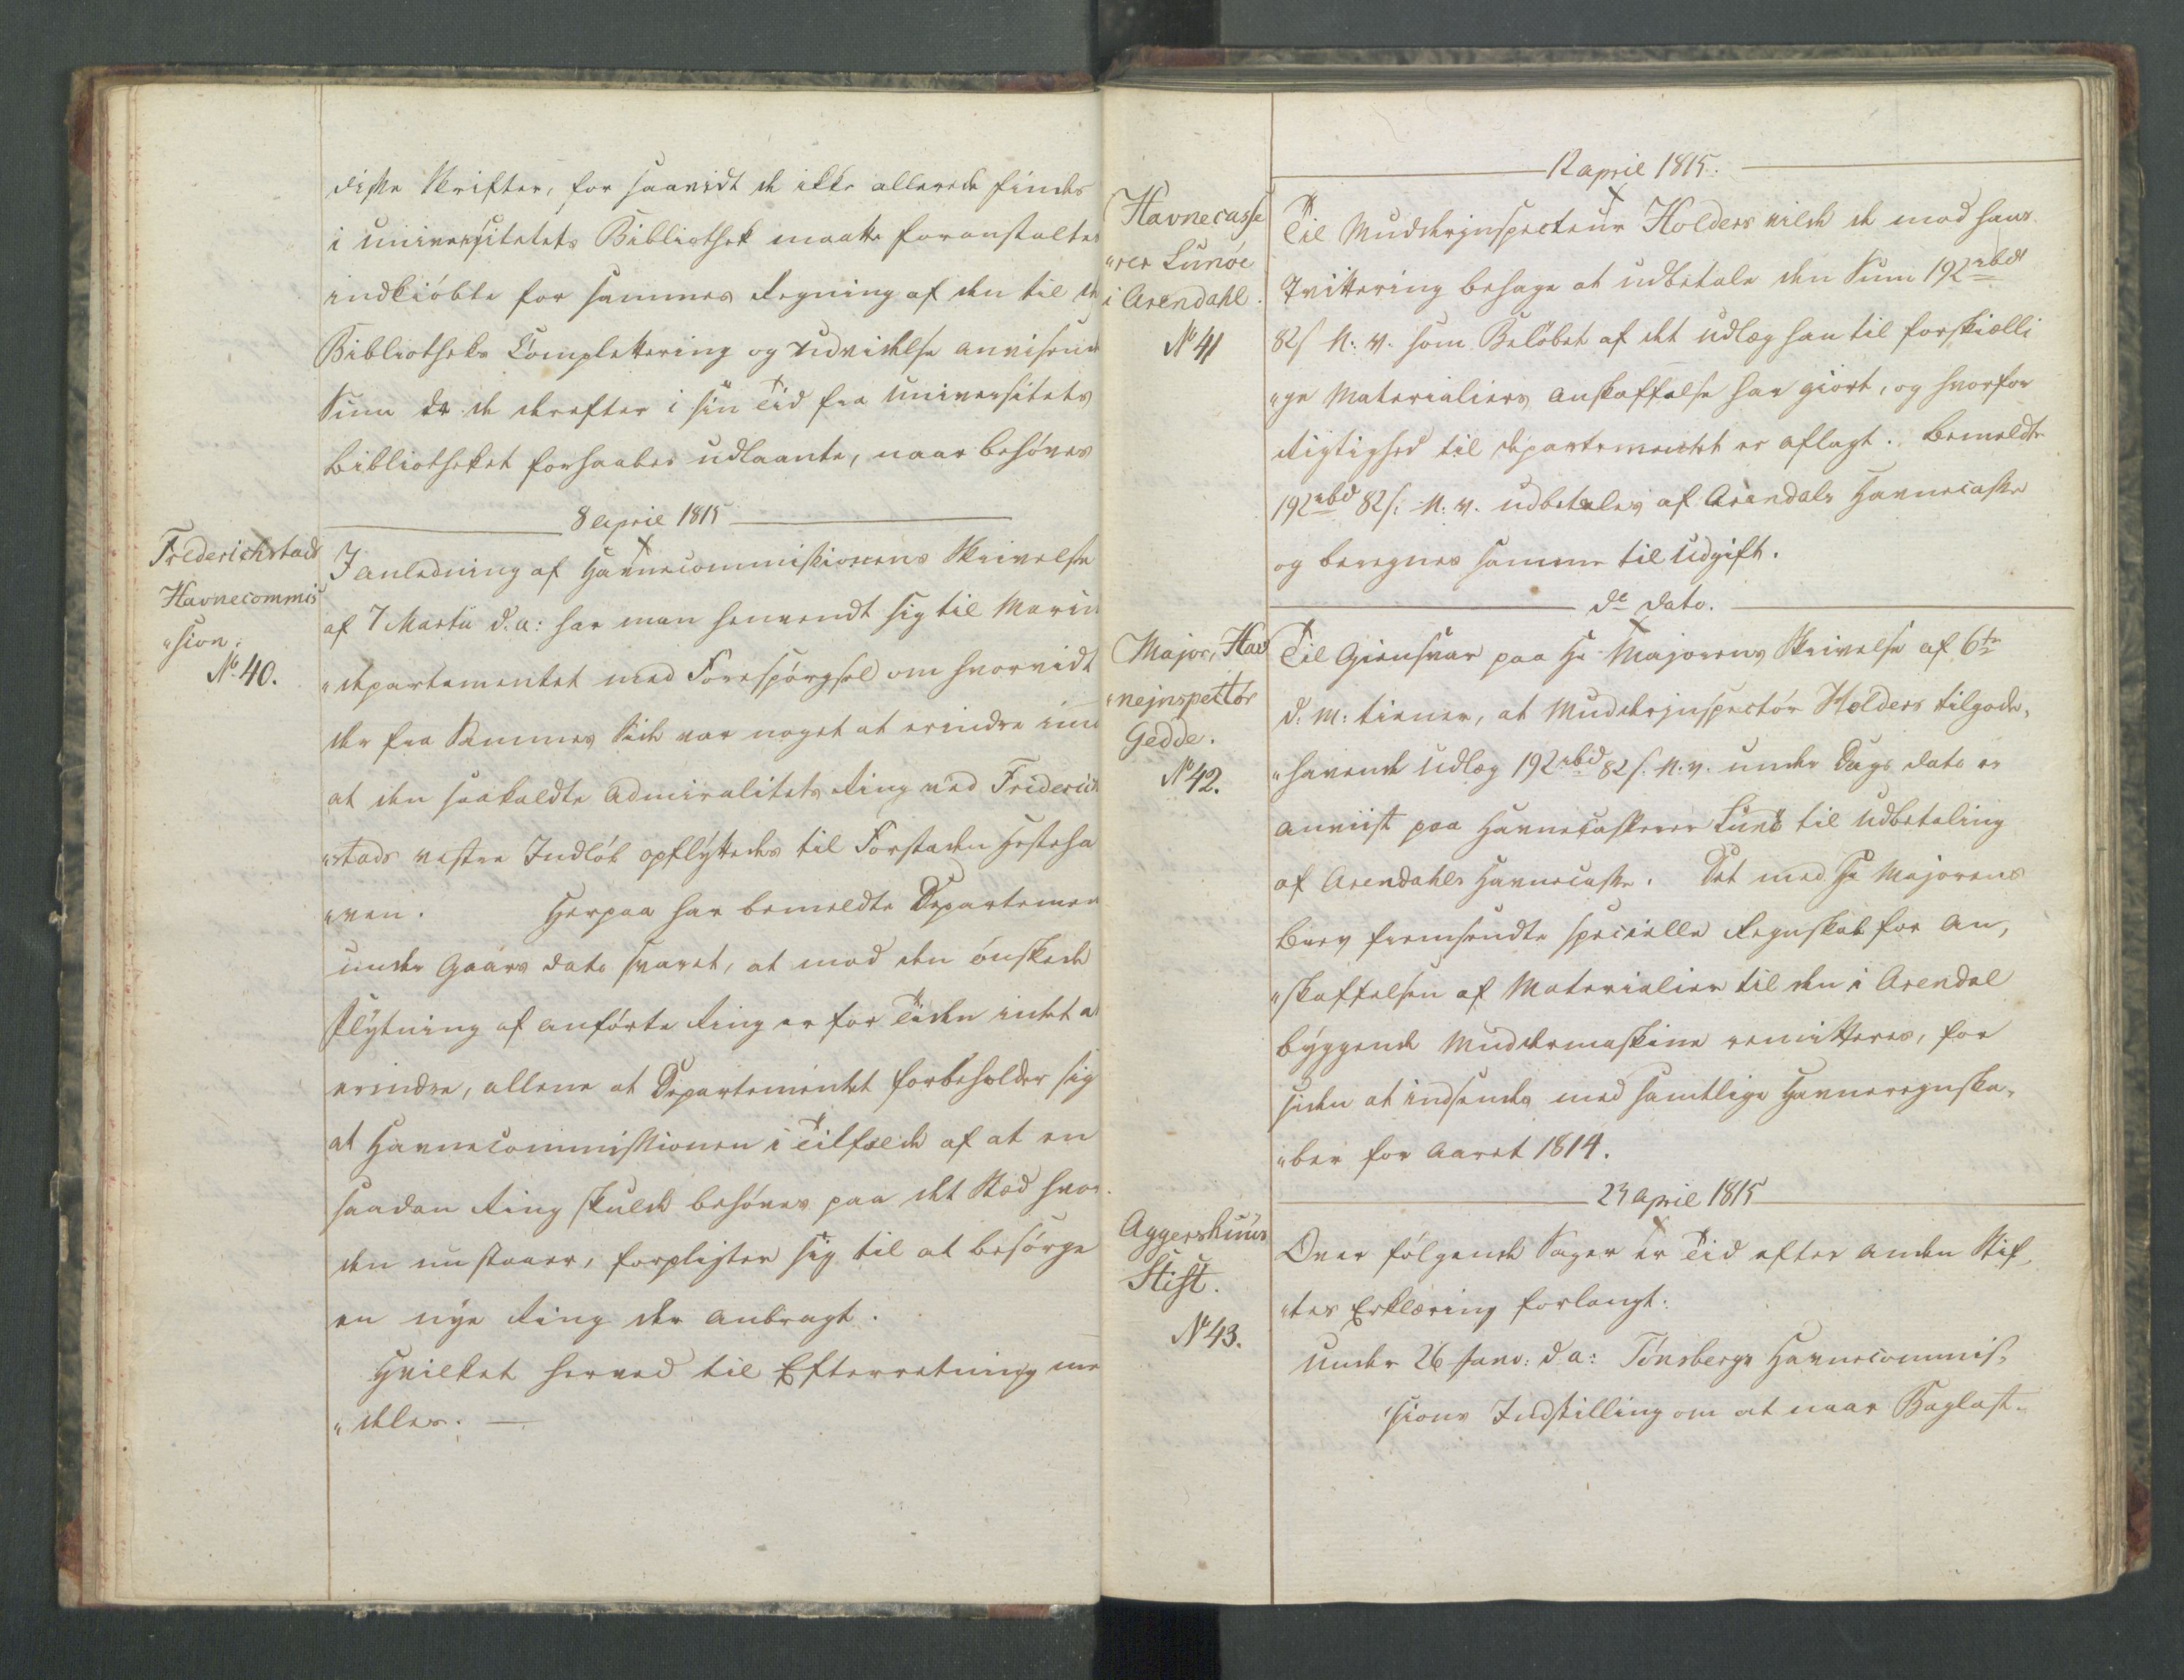 disse Skrifter, for saavidt de ikke allerede findes
i Universitetets Bibliothek maatte foranstaltes
indkiöbte for sammes Regning af den til
Bibliotheks Complettering og Udvidelse anvisende
Sum da de derefter i sin Tid fra Universitets
Bibliotheket forhaabes udlaante, naar behöves
8 April 1815
Frederichstads
Havnecommis
"sion.
No 40.
I Anledning af Havnecommissionens Skrivelse
af 7 Martii d. a: har man henvendt sig til Marin
"departementet med Forespörgsel om hvorvidt
der fra Sammes Side var noget at erindre imod
at den saakaldte Admiralitets Ring ved Friderich
"stads vestre Indlöb opflÿttedes til Forstaden Hesteha
"ven. Herpaa har bemeldte Departement
under Gaars Dato svaret, at mod den önskede
Flÿtning af anförte Ring er for Tiden intet at
erindre, allene at Departementet forbeholder sig
at Havnecommissionen i Tilfælde af at en
saadan Ring skulde behöves paa det Stæd hvor
den nu staaer, forpligter sig til at besörge
en nÿe Ring der anbragt.
Hvilket herved til Efterretning med
"deles. —
12 april 1815.
Havnecasse
"rer Lunöe
i Arendahl.
No 41
Til Mudderjnspecteur Holders vilde de mod hans
Qvittering behage at udbetale den Sum 192 rbd
82 s N: V. som Belöbet af det Udlæg han til forskielli
"ge Materialiers Anskaffelse har giort, og hvorfor
Rigtighed til Departementet er aflagt. Bemeldte
192 rbd 82 s: N: V. udbetales af Arendals Havnecasse
og beregnes samme til Udgift.
de Dato.
Major, Hav
"nejnspectör
Gedde.
No 42.
Til Giensvar paa Hr Majorens Skrivelse af 6te
d: M: tiener, at Mudderjnspectör Holders tilgode,
"havende Udlæg 192 rbd 82 s. N: V. under Dags Dato er
anviist paa Havnecasserer Lunöe til Udbetaling
af Arendahls Havnecasse. Det med Hr Majorens
Brev fremsendte specielle Regnskab for An,
"skaffelsen af Materialier til den i Arendal
bÿggende Muddermaskine remitteres, for
siden at indsendes med samtlige Havneregnska,
"ber for Aaret 1814.
23 April 1815
Aggershuus
Stift.
No 43.
Over fölgende Sager er Tid efter anden Stif,
"tes Erklæring forlangt:
Under 26 Janv: d. a: Tönsbergs Havnecommis,
"sions Indstilling om at naar Baglast-